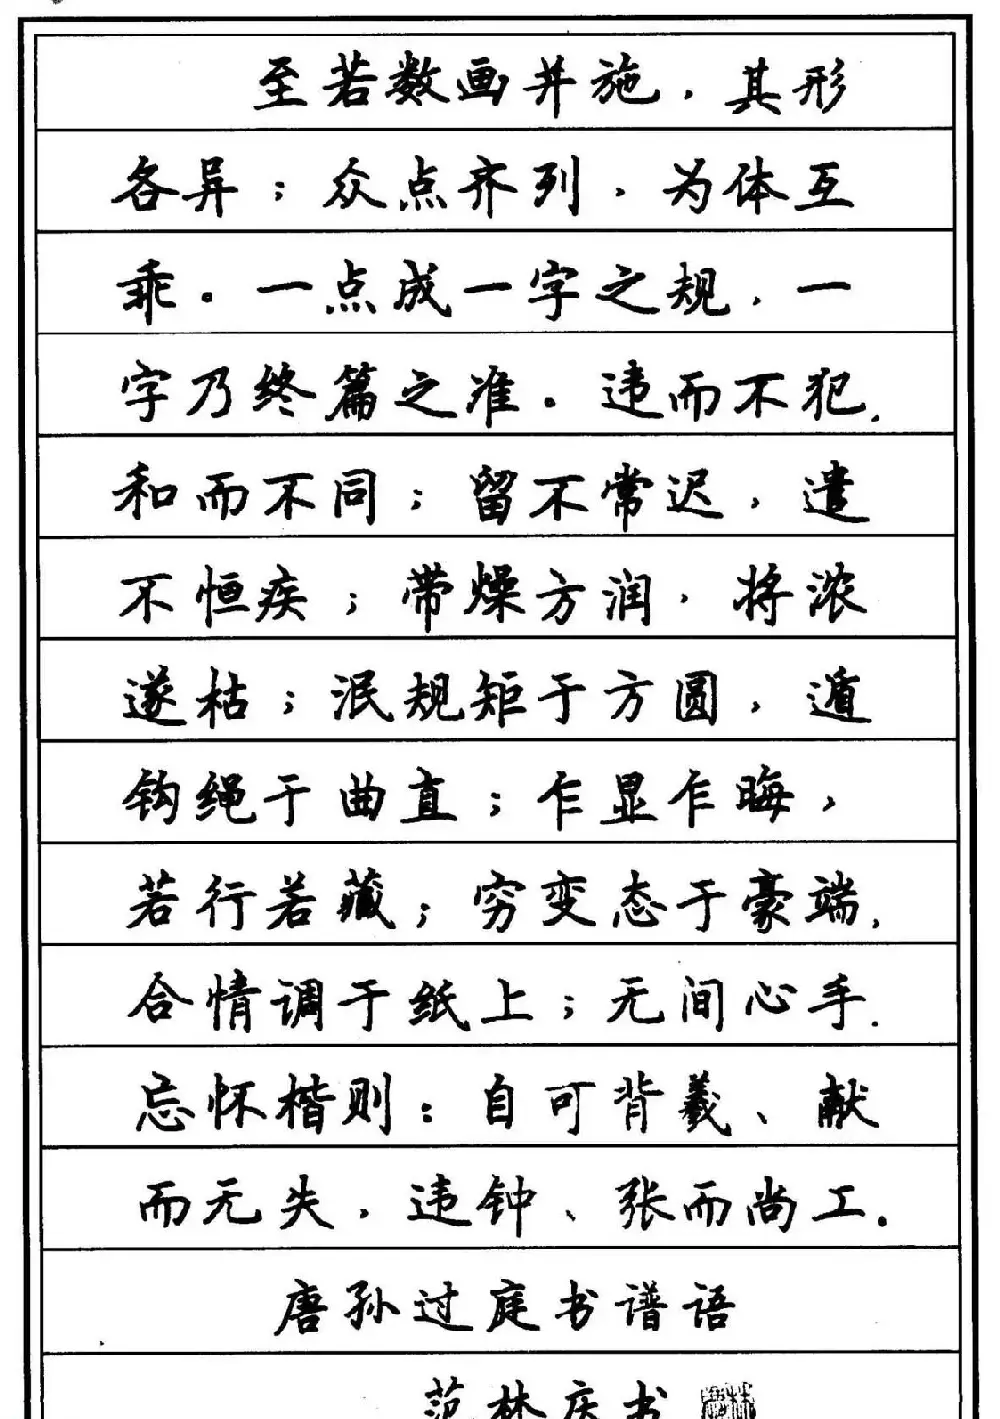 至若数画并施，其形
各异；众点齐列，为体互
乖。一点成一字之规，一
字乃终篇之准。违而不犯，
和而不同；留不常迟，遣
不恒疾；带燥方润，将浓
遂枯；泯规矩于方圆，遁
钩绳于曲直；乍显乍晦，
若行若藏；穷变态于豪端，
合情调于纸上；无间心手，
忘怀楷则：自可背羲、献
而无失，违钟、张而尚工。
唐孙过庭书谱语
范林庆书